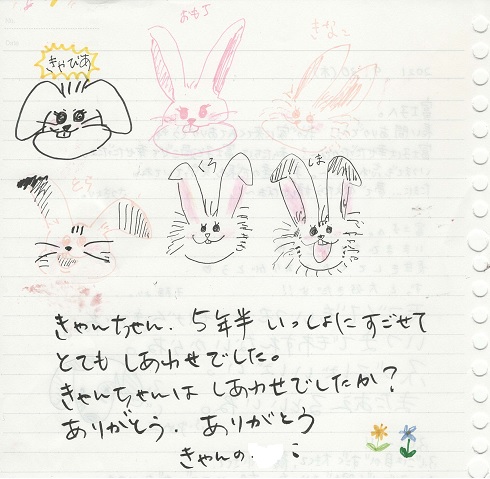 きゃびあ
おもち
きなこ
とら
くろ
しま
きゃんちゃん. 5年半 いっしょにすごせて
とても しあわせでした。
きゃんちゃんは しあわせでしたか?
ありがとう. ありがとう
きゃんの